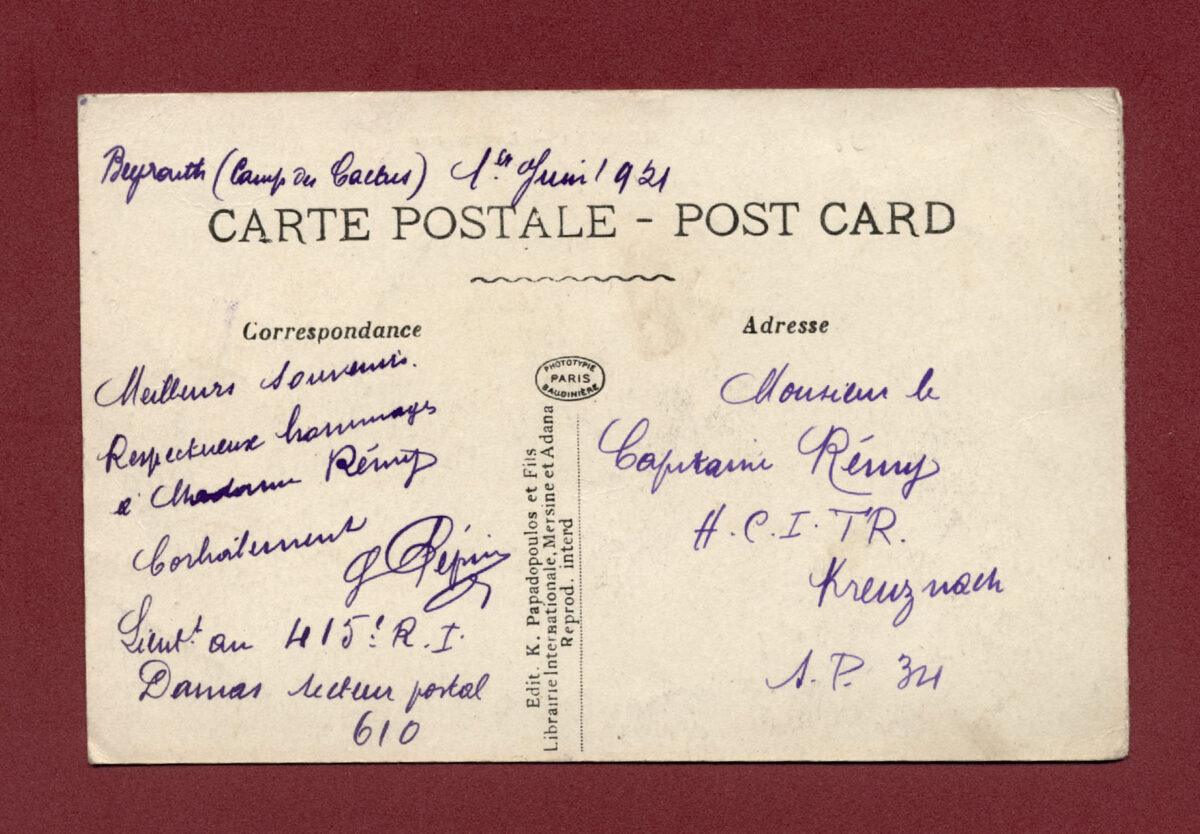 Beyrouth (Camp des Cactus) 1er Juin 1921
CARTE POSTALE - POST CARD
Correspondance
Meilleurs souvenirs.
Respectueux hommages
à Madame Rémy
Cordialement
G Pépin
Lieutt au 415e R.I.
Damas secteur postal
610
PHOTOTYPIE
PARIS
BAUDINIÈRE
Edit. K. Papadopoulos et Fils
Librairie Internationale, Mersine et Adana
Reprod. interd
Adresse
Monsieur le
Capitaine Rémy
H.C.I.T.R.
Kreuznach
S.P. 34